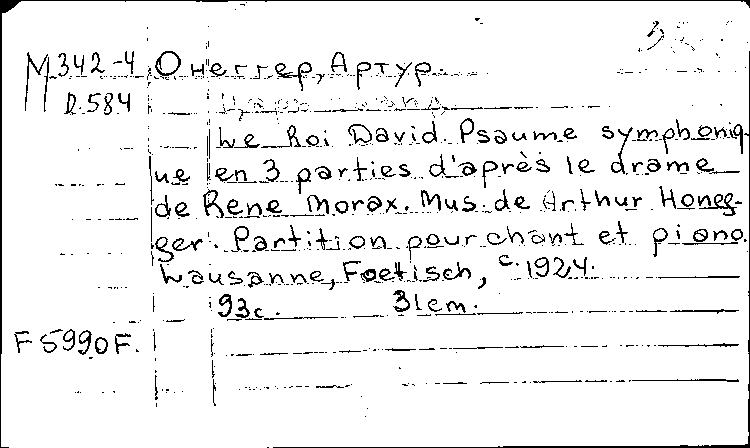 М342-4 Онеггер, Артур.
D.584 Царь Давид
Le Roi David. Psaume symphoniq-
ue en 3 parties d'après le drame
de Rene Morax. Mus. de Arthur Honeg-
ger. Partition pour chant et piano.
Lausanne, Foetisch, c. 1924.
93c. 31cm.
F5990F.